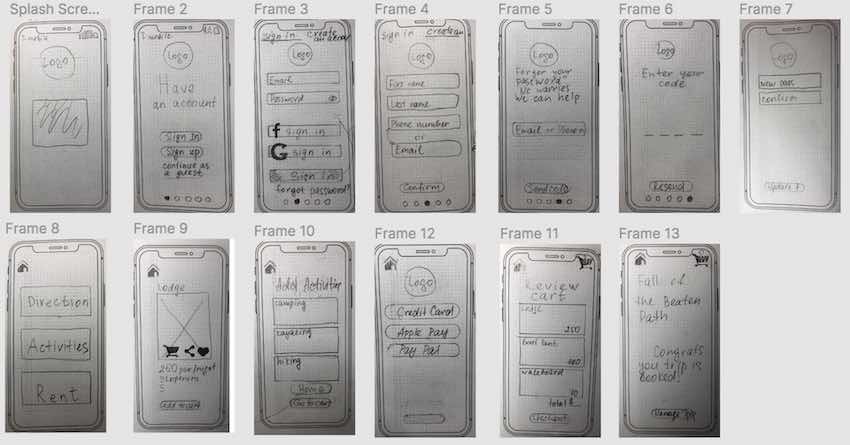 Splash Scre...
Logo
Frame 2
Logo
Have
an account
Sign In
Sign up
continue as
a guest
Frame 3
Sign in create
Logo
Email
Password
f sign in
G sign in
Sign In
forgot password?
Frame 4
Sign in create an
Logo
First name
Last name
Phone number
or
Email
Confirm
Frame 5
Logo
Forgot your
password?
No worries
we can help
Email or
Send code
Frame 6
Logo
Enter your
code
Resend
Frame 7
Logo
new pass
confirm
Update
Frame 8
Direction
Activities
Rent
Frame 9
Lodge
250 per/night
Add to cart
Frame 10
Add Activities
camping
kayaking
hiking
Home
Go to cart
Frame 12
Logo
Credit Card
Apple Pay
Pay Pal
Frame 11
Review
cart
250
total
Checkout
Frame 13
Fall of
the Beaten
Path
Congrats
you trip is
booked!
Manage